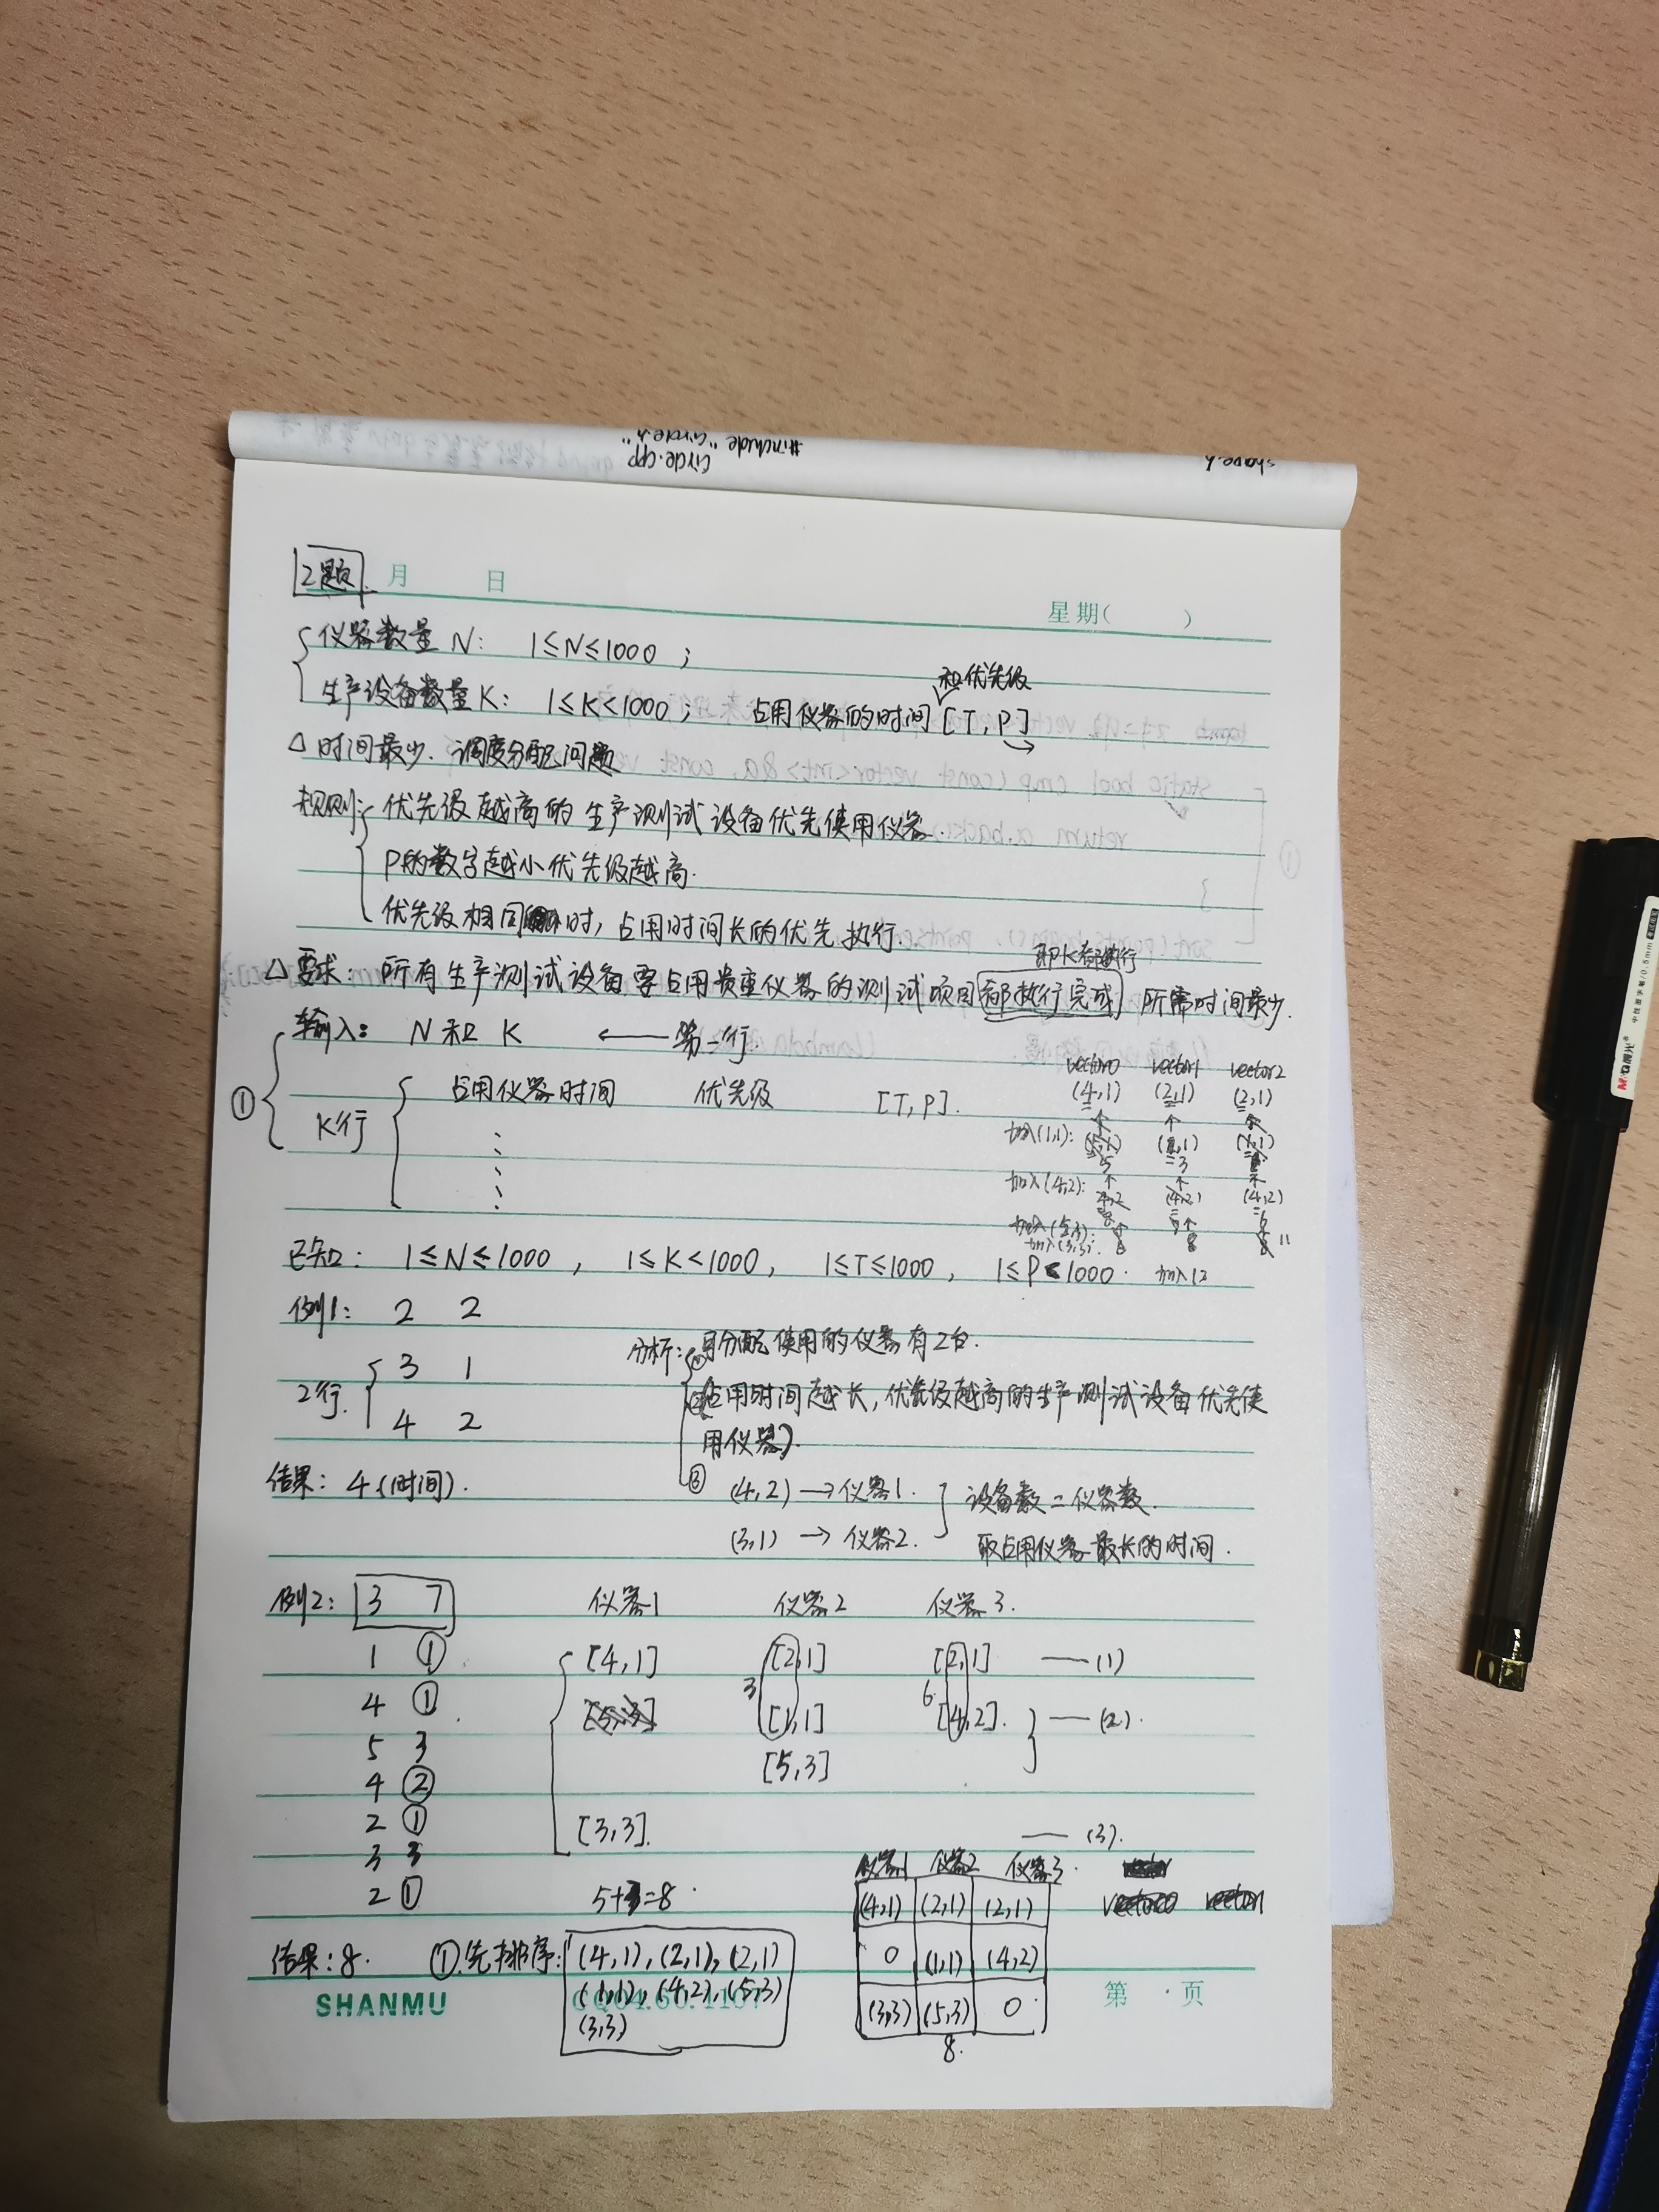 #include "Circle.h"
Circle.cpp
shape.h
2题 月 日
星期( )
仪器数量 N: 1≤N≤1000 ;
和优先级
生产设备数量 K: 1≤K<1000 ; 占用仪器的时间 [T, P]
△ 时间最少. 调度分配问题
规则: 优先级越高的生产测试设备优先使用仪器.
P的数字越小优先级越高.
优先级相同时, 占用时间长的优先执行.
即K都执行
△ 要求: 所有生产测试设备要占用贵重仪器的测试项目都执行完成 所需时间最少.
① 输入: N 和 K ← 第一行.
K行 占用仪器时间 优先级 [T, P].
vector0 vector1 vector2
(4,1) (2,1) (2,1)
加入(1,1):
=5 =3
加入(4,2):
4,2 (4,2) (4,2)
加入(5,3):
加入(3,3):
已知: 1≤N≤1000 , 1≤K<1000, 1≤T≤1000, 1≤P<1000.
例1: 2 2
2行. 3 1
4 2
分析: ① 可分配使用的仪器有2台.
② 占用时间越长, 优先级越高的生产测试设备优先使
用仪器).
③ (4,2) → 仪器1.
(3,1) → 仪器2.
设备数 = 仪器数.
取占用仪器最长的时间.
结果: 4 (时间).
例2: 3 7 仪器1 仪器2 仪器3.
1 ① [4,1] [2,1] [2,1] — (1)
4 ① 3 [1,1] 6 [4,2]. — (2).
5 3 [5,3]
4 ②
2 ① [3,3]. — (3).
3 3
2 ① 5+3=8
仪器1 仪器2 仪器3.
(4,1) (2,1) (2,1)
0 (1,1) (4,2)
(3,3) (5,3) 0
8.
结果: 8. ①.先排序: (4,1), (2,1), (2,1)
(1,1), (4,2), (5,3)
(3,3)
SHANMU
第 页
M&G晨光
中性替芯/0.5mm